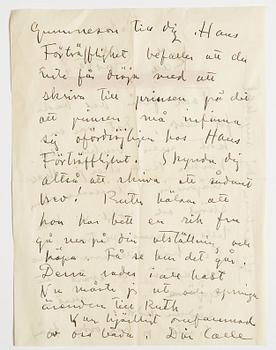 Gunnarson till dig. Hans
Förträfflighet befaller att du
icke får dröja med att
skriva till prinsen, på det
att prinsen må infinna
sig ofördröjligen hos Hans
Förträfflighet. Skynda dig
alltså att skriva ett sådant
brev! Ruth hälsar att
hon har bett en rik fru
gå ner på din utställning och
köpa. Få se hur det går.
Dessa rader i all hast
Nu måste jag ut och springa
ärenden till Ruth
Var hjärtligt omfamnad
av oss båda! Din Calle